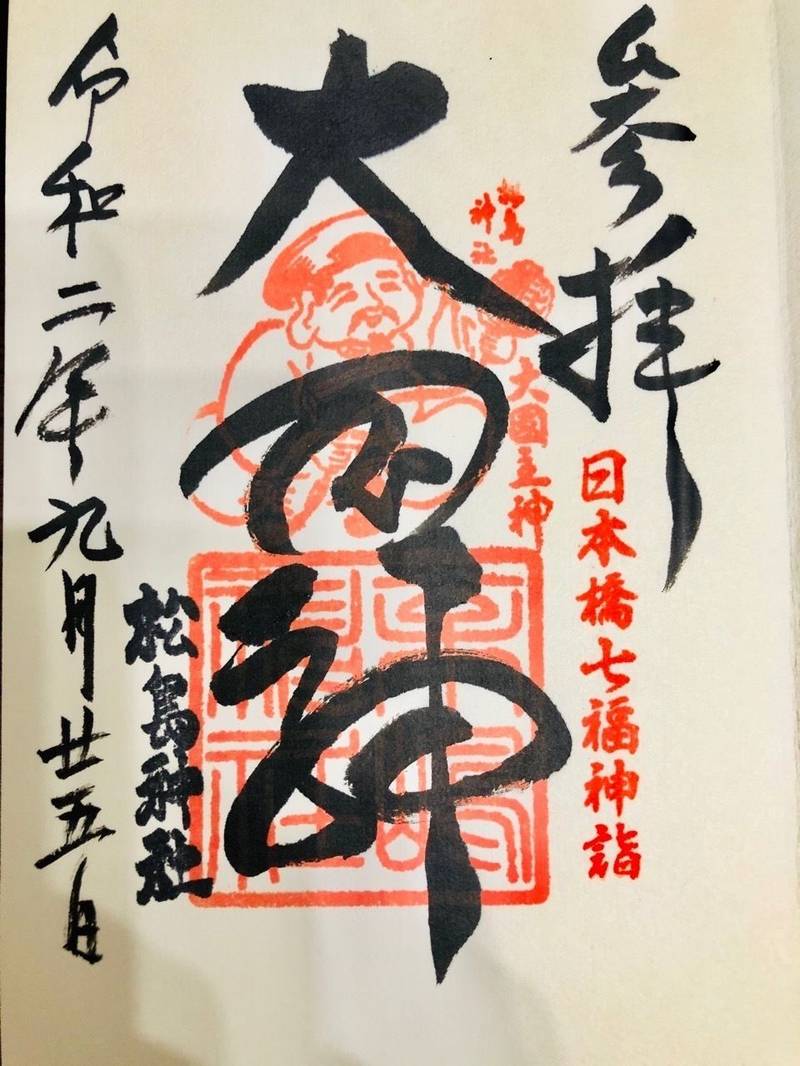 参拝
日本橋七福神詣
松島
神社
大国主神
大国神
松島神社
令和二年九月廿五日